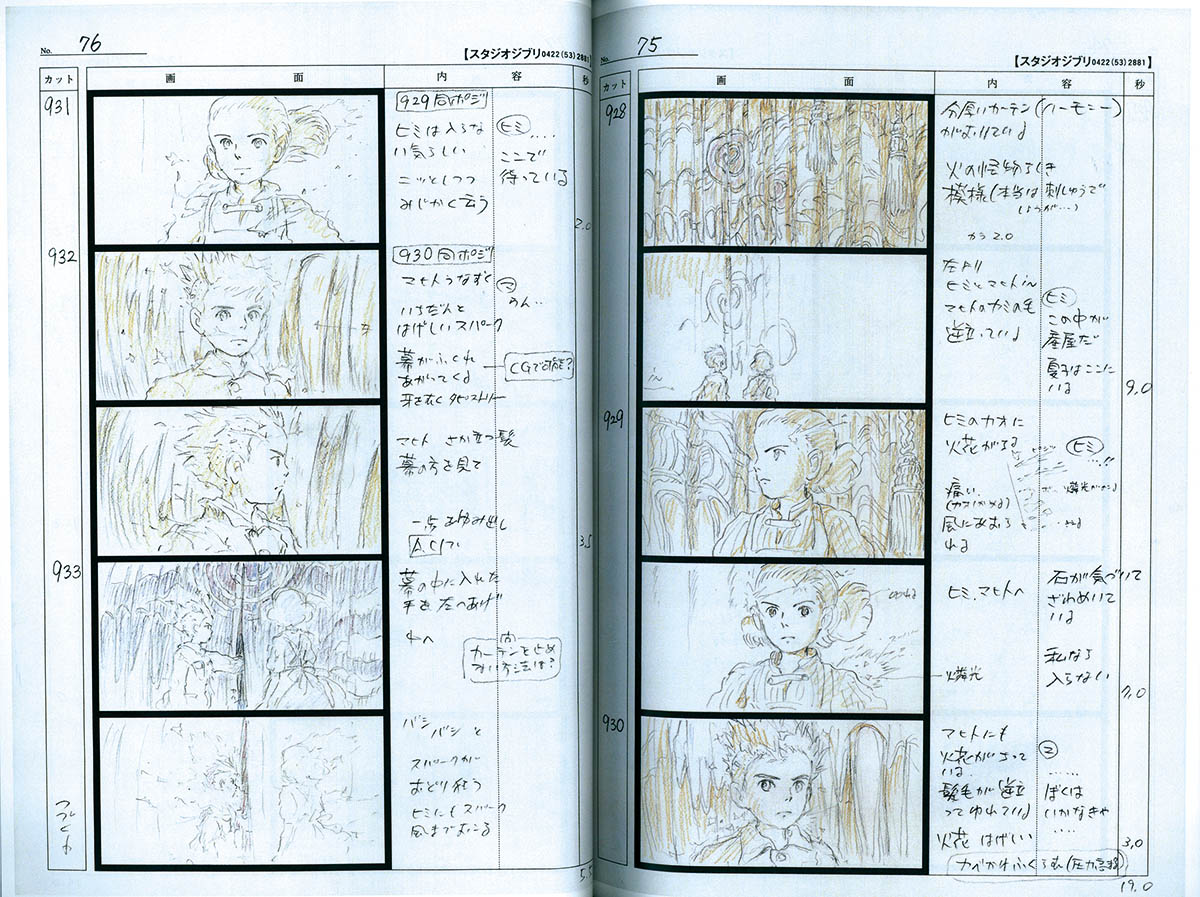 No. 75
【スタジオジブリ0422(53)2881】
カット
画面
内容
秒
928
分厚いカーテン(ハーモニー)
火の怪物らしき
模様(本当は刺しゅうで
しょうが…)
から2.0
左より
ヒミとマヒトin
マヒトのカミの毛
逆立っている
ヒミ
この中が
産屋だ
夏子はここに
いる
9.0
929
ヒミのカオに
火花が
ヒミ
…!!
痛い
風に
ヒミ、マヒトへ
石が気づいて
ざわめいて
いる
私なら
入らない
燐光
7.0
930
マヒトにも
火花がちって
いる
髪毛が逆立
ってゆれている
火花 はげしい
マ
……
ぼくは
いかなきゃ
….
3.0
19.0
No. 76
【スタジオジブリ0422(53)2881】
カット
画面
内容
秒
931
929同ポジ
ヒミは入らな
い気らしい
ニッとしつつ
みじかく云う
ヒミ….
ここで
待っている
2.0
932
930同ポジ
マヒトうなずく
マ
うん…
いちだんと
はげしいスパーク
幕がふくれ
あがってくる
牙をむくタピストリー
CGで可能?
マヒト さか立つ髪
幕の方を見て
一歩ふみ出し
A.C.
3.5
933
幕の中に入れた
手を左へあげ
中へ
カーテンを
方法は?
バシ
バシと
スパークが
おどり狂う
ヒミにもスパーク
風まきおこる
つづく